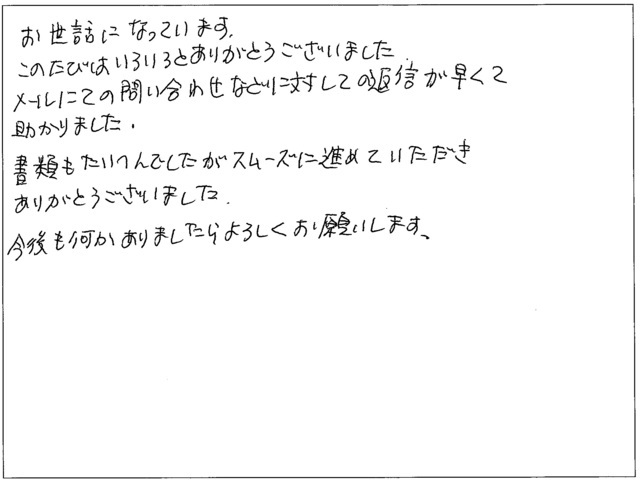 お世話になっています。
このたびはいろいろとありがとうございました
メールにての問い合わせなどに対しての返信が早くて
助かりました.
書類もたいへんでしたがスムーズに進めていただき
ありがとうございました.
今後も何かありましたらよろしくお願いします。